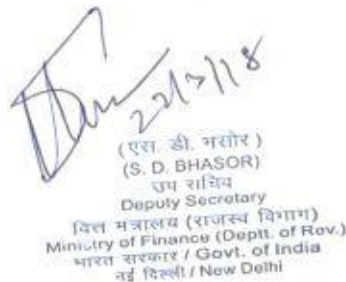 22/3/18
(एस. डी. भसोर)
(S. D. BHASOR)
उप सचिव
Deputy Secretary
वित्त मंत्रालय (राजस्व विभाग)
Ministry of Finance (Deptt. of Rev.)
भारत सरकार / Govt. of India
नई दिल्ली / New Delhi